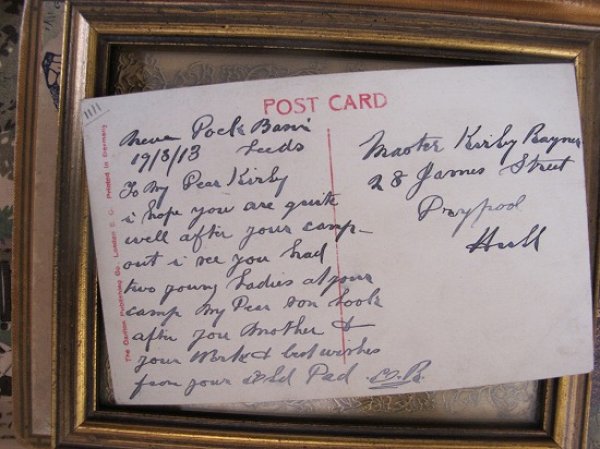 11/1
POST CARD
New Dock Basin
19/8/13 Leeds
To My Dear Kirby
i hope you are quite
well after your camp-
out i see you had
two young Ladies at your
camp My Dear son Look
after you Mother &
your Work & best wishes
from your Old Dad
Master Kirby Rayner
28 James Street
Drypool
Hull
The Carlton Publishing Co. London E. C. Printed in Germany